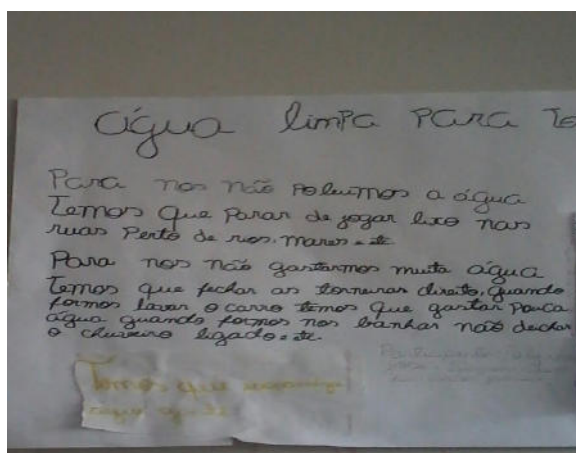 água limpa para te
Para nos não poluimos a água
Temos que parar de jogar lixo nas
ruas perto de rios, mares e etc
Para nos não gastarmos muita água
Temos que fechar as torneiras direito, quando
formos lavar o carro temos que gastar pouca
água quando formos nos banhar não deichar
o chuveiro ligado e etc.
Temos que